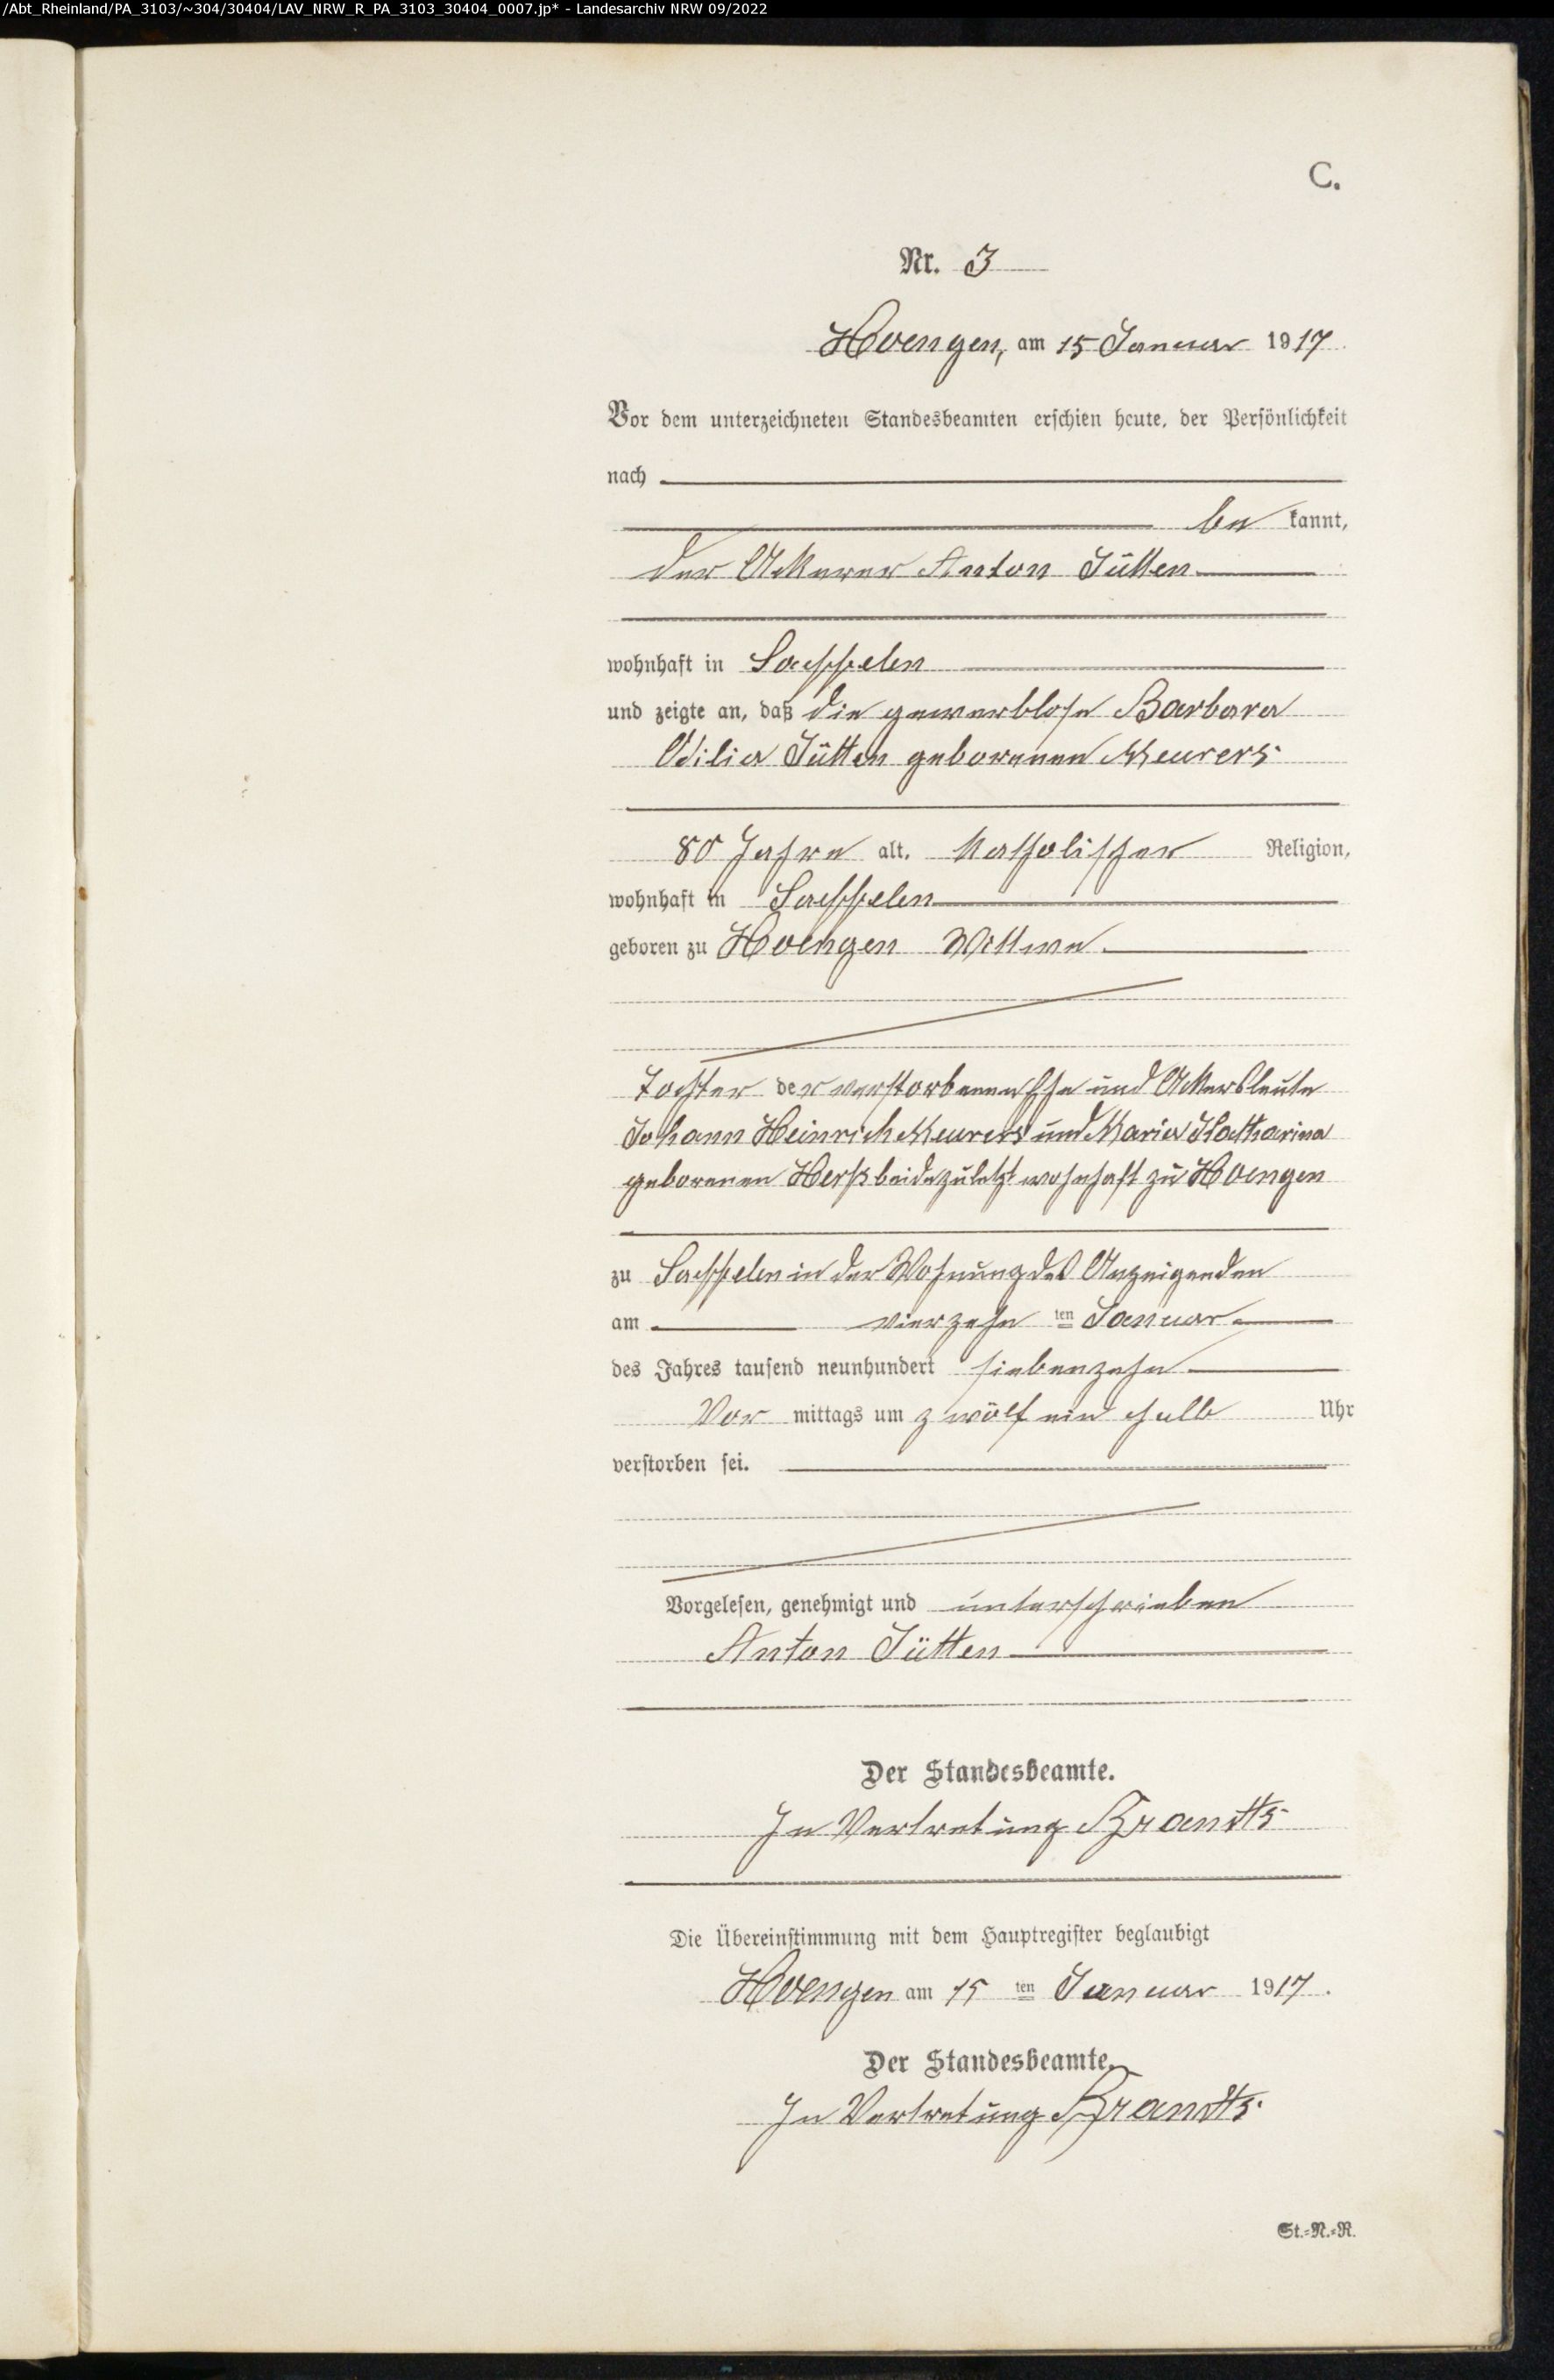 /Abt_Rheinland/PA_3103/~304/30404/LAV_NRW_R_PA_3103_30404_0007.jp* - Landesarchiv NRW 09/2022
C.
Nr. 3
Hoengen, am 15 Januar 1917.
Vor dem unterzeichneten Standesbeamten erschien heute, der Persönlichkeit
nach
be kannt,
der Ackerer Anton Jütten
wohnhaft in
und zeigte an, daß die gewerblose Barbara
Odilia Jütten geborenen Meurers
80 Jahre alt, katholischer Religion,
wohnhaft in
geboren zu Hoengen Wittwe
Tochter der verstorbenen Ehe und Ackersleute
Johann Heinrich Meurers und Maria Katharina
geborenen beide zuletzt wohnhaft zu Hoengen
zu in der Wohnung des Anzeigenden
am vierzehn ten Januar
des Jahres tausend neunhundert siebenzehn
Vor mittags um zwölf ein halb Uhr
verstorben sei.
Vorgelesen, genehmigt und unterschrieben
Anton Jütten
Der Standesbeamte.
In Vertretung Brandts
Die Übereinstimmung mit dem Hauptregister beglaubigt
Hoengen am 15 ten Januar 1917.
Der Standesbeamte.
In Vertretung Brandts
St.-N.-R.